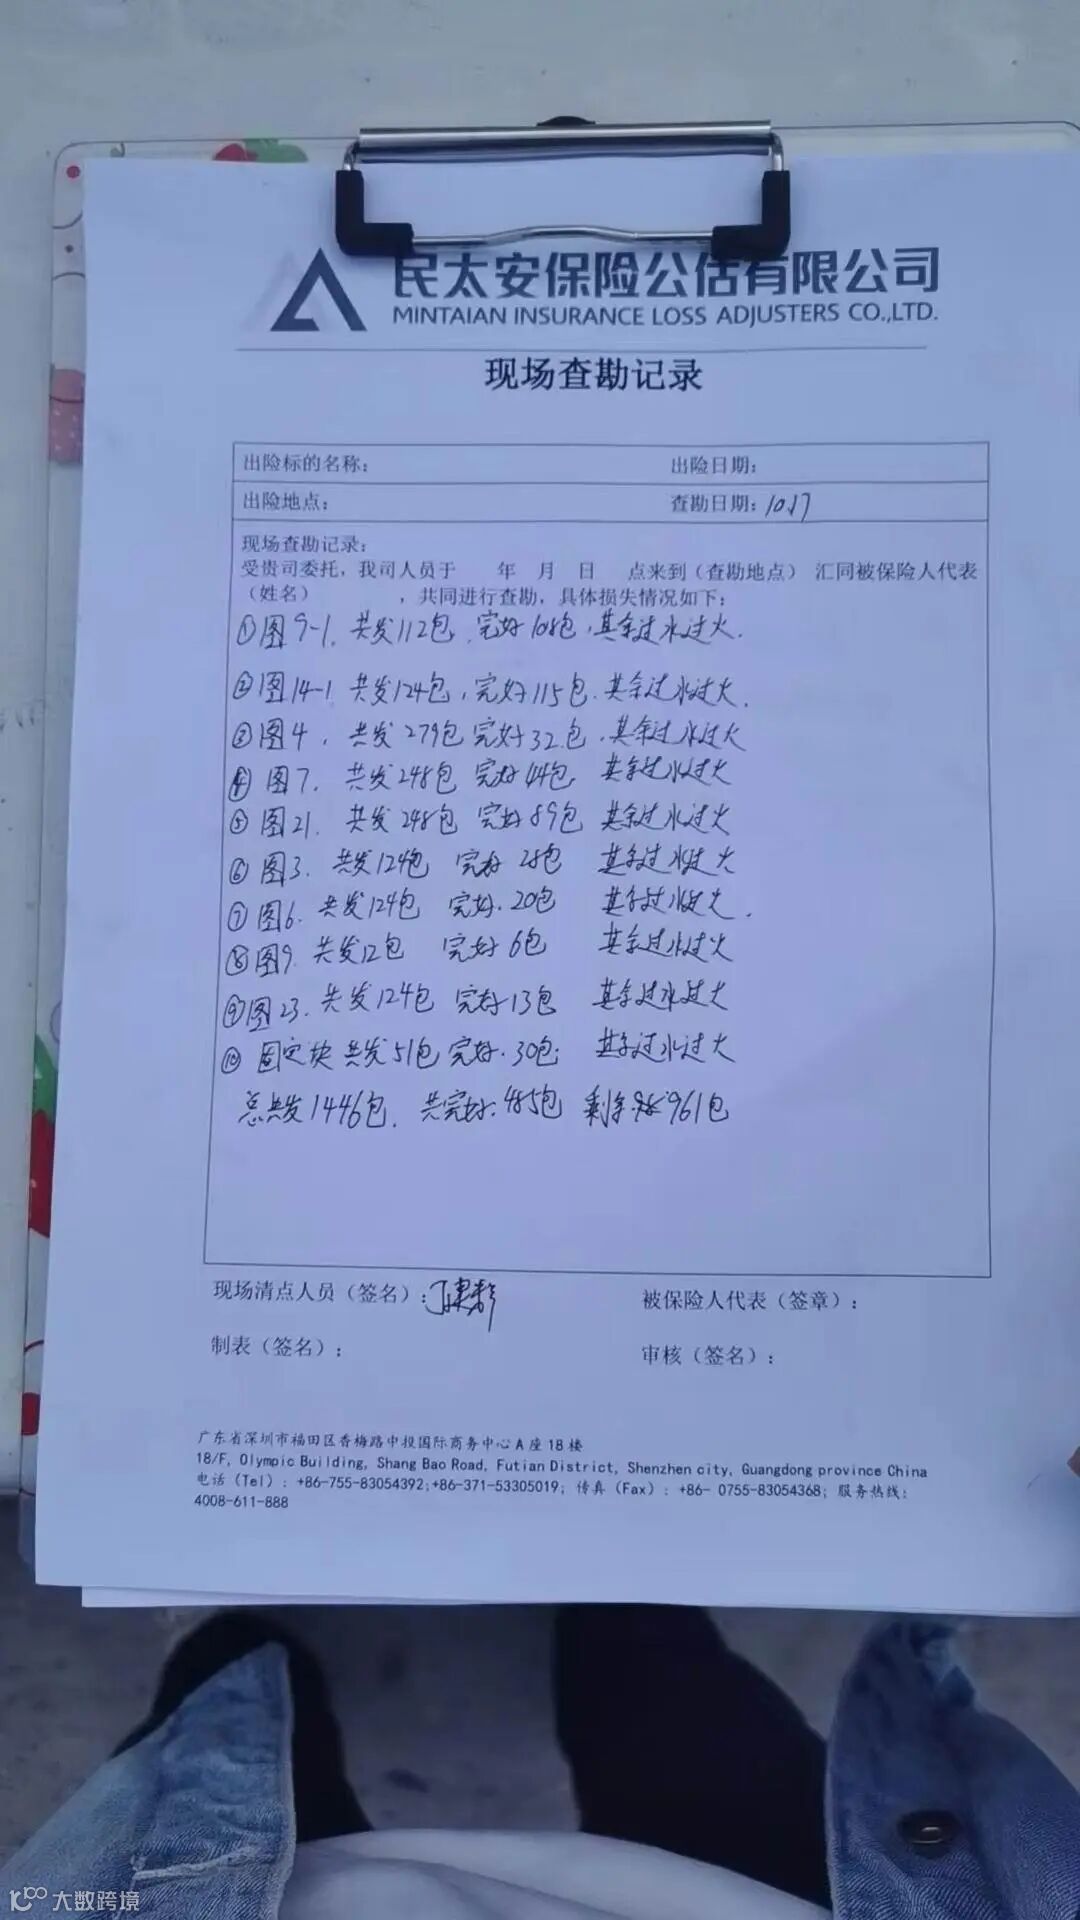 民太安保险公估有限公司
MINTAIAN INSURANCE LOSS ADJUSTERS CO.,LTD.
现场查勘记录
出险标的名称： 出险日期：
出险地点： 查勘日期：10.17
现场查勘记录：
受贵司委托，我司人员于 年 月 日 点来到（查勘地点） 汇同被保险人代表
（姓名） ，共同进行查勘，具体损失情况如下：
①图9-1. 共发112包. 完好108包，其余过水过火.
②图14-1 共发124包，完好115包. 其余过水过火.
③图4. 共发279包 完好32包，其余过水过火
④图7. 共发248包 完好44包 其余过水过火
⑤图21. 共发248包 完好89包 其余过水过火
⑥图3. 共发124包 完好28包 其余过水过火
⑦图6. 共发124包 完好.20包 其余过水过火.
⑧图9. 共发12包 完好6包 其余过水过火
⑨图23. 共发124包 完好13包 其余过水过火
⑩固定块 共发51包 完好.30包 其余过水过火
总共发1446包. 共完好.485包 剩余:961包
现场清点人员（签名）：
被保险人代表（签章）：
制表（签名）：
审核（签名）：
广东省深圳市福田区香梅路中投国际商务中心A座18楼
18/F, Olympic Building, Shang Bao Road, Futian District, Shenzhen city, Guangdong province China
电话（Tel）：+86-755-83054392;+86-371-53305019；传真（Fax）：+86- 0755-83054368；服务热线：
4008-611-888
大数跨境